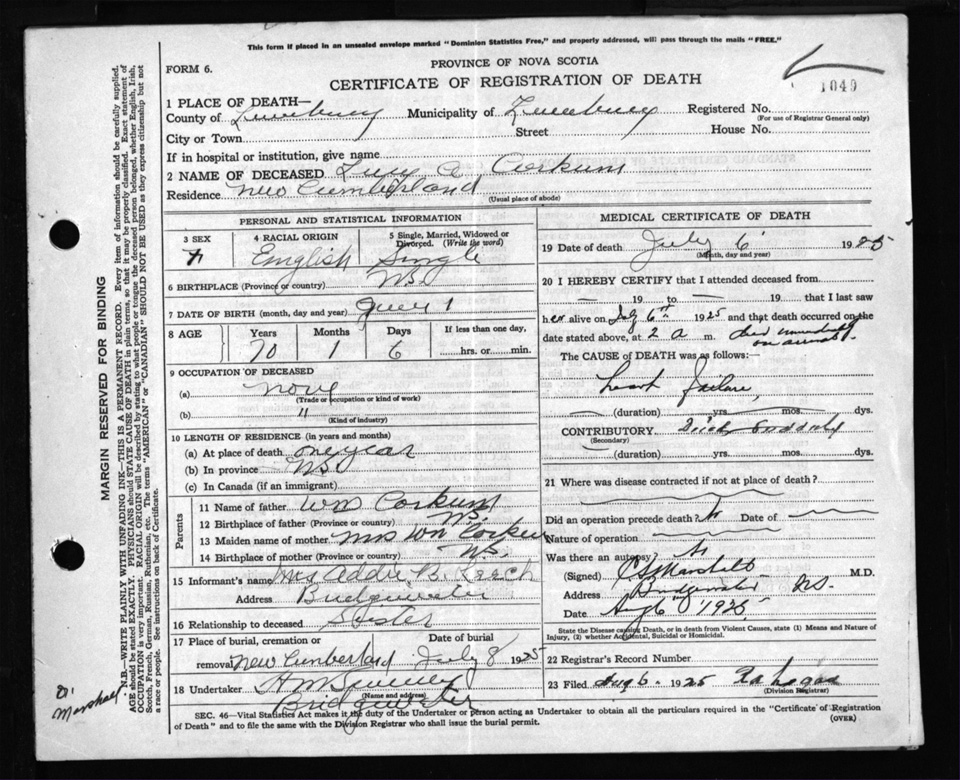 This form if placed in an unsealed envelope marked "Dominion Statistics Free," and properly addressed, will pass through the mails "FREE."
FORM 6.
PROVINCE OF NOVA SCOTIA
CERTIFICATE OF REGISTRATION OF DEATH
1049
1 PLACE OF DEATH—
County of Lunenburg Municipality of Lunenburg Registered No.
(For use of Registrar General only)
City or Town Street House No.
If in hospital or institution, give name
2 NAME OF DECEASED Lucy A Corkum
Residence New Cumberland
(Usual place of abode)
PERSONAL AND STATISTICAL INFORMATION
3 SEX 4 RACIAL ORIGIN 5 Single, Married, Widowed or Divorced. (Write the word)
F English Single
6 BIRTHPLACE (Province or country) NS
7 DATE OF BIRTH (month, day and year) June 1
8 AGE Years Months Days If less than one day,
70 1 6 hrs. or min.
9 OCCUPATION OF DECEASED
(a) none
(Trade or occupation or kind of work)
(b) "
(Kind of industry)
10 LENGTH OF RESIDENCE (in years and months)
(a) At place of death one year
(b) In province NS
(c) In Canada (if an immigrant)
Parents
11 Name of father Wm Corkum
12 Birthplace of father (Province or country) NS.
13 Maiden name of mother Mrs Wm Corkum
14 Birthplace of mother (Province or country) NS.
15 Informant's name Mrs Addie B. Leech
Address Bridgewater
16 Relationship to deceased Sister
17 Place of burial, cremation or removal New Cumberland Date of burial July 8 1925
18 Undertaker
(Name and address)
Bridgewater
MEDICAL CERTIFICATE OF DEATH
19 Date of death July 6 1925
(Month, day and year)
20 I HEREBY CERTIFY that I attended deceased from
— 19 to — 19 that I last saw
her alive on July 6th 1925 and that death occurred on the
date stated above, at 2 a m. died immediately on arrival.
The CAUSE OF DEATH was as follows:
heart failure
(duration) yrs. mos. dys.
CONTRIBUTORY Died Suddenly
(Secondary)
(duration) yrs. mos. dys.
21 Where was disease contracted if not at place of death?
Did an operation precede death? Date of
Nature of operation
Was there an autopsy?
(Signed) Marshall M.D.
Address Bridgewater NS.
Date Aug 6 1925
State the Disease causing Death, or in death from Violent Causes, state (1) Means and Nature of Injury, (2) whether Accidental, Suicidal or Homicidal.
22 Registrar's Record Number
23 Filed Aug 6. 1925
(Division Registrar)
SEC. 46—Vital Statistics Act makes it the duty of the Undertaker or person acting as Undertaker to obtain all the particulars required in the "Certificate of Registration
of Death" and to file the same with the Division Registrar who shall issue the burial permit.
(OVER)
MARGIN RESERVED FOR BINDING
N.B.—WRITE PLAINLY WITH UNFADING INK—THIS IS A PERMANENT RECORD. Every item of information should be carefully supplied.
AGE should be stated EXACTLY. PHYSICIANS should STATE CAUSE OF DEATH in plain terms, so that it may be properly classified. Exact statement of
OCCUPATION is very important. RACIAL ORIGIN will be described by stating to what people or tongue the deceased person belonged, whether English, Irish,
Scotch, French, German, Russian, Ruthenian, etc. The terms "AMERICAN" or "CANADIAN" SHOULD NOT BE USED as they express citizenship but not
a race or people. See instructions on back of Certificate.
Dr Marshall